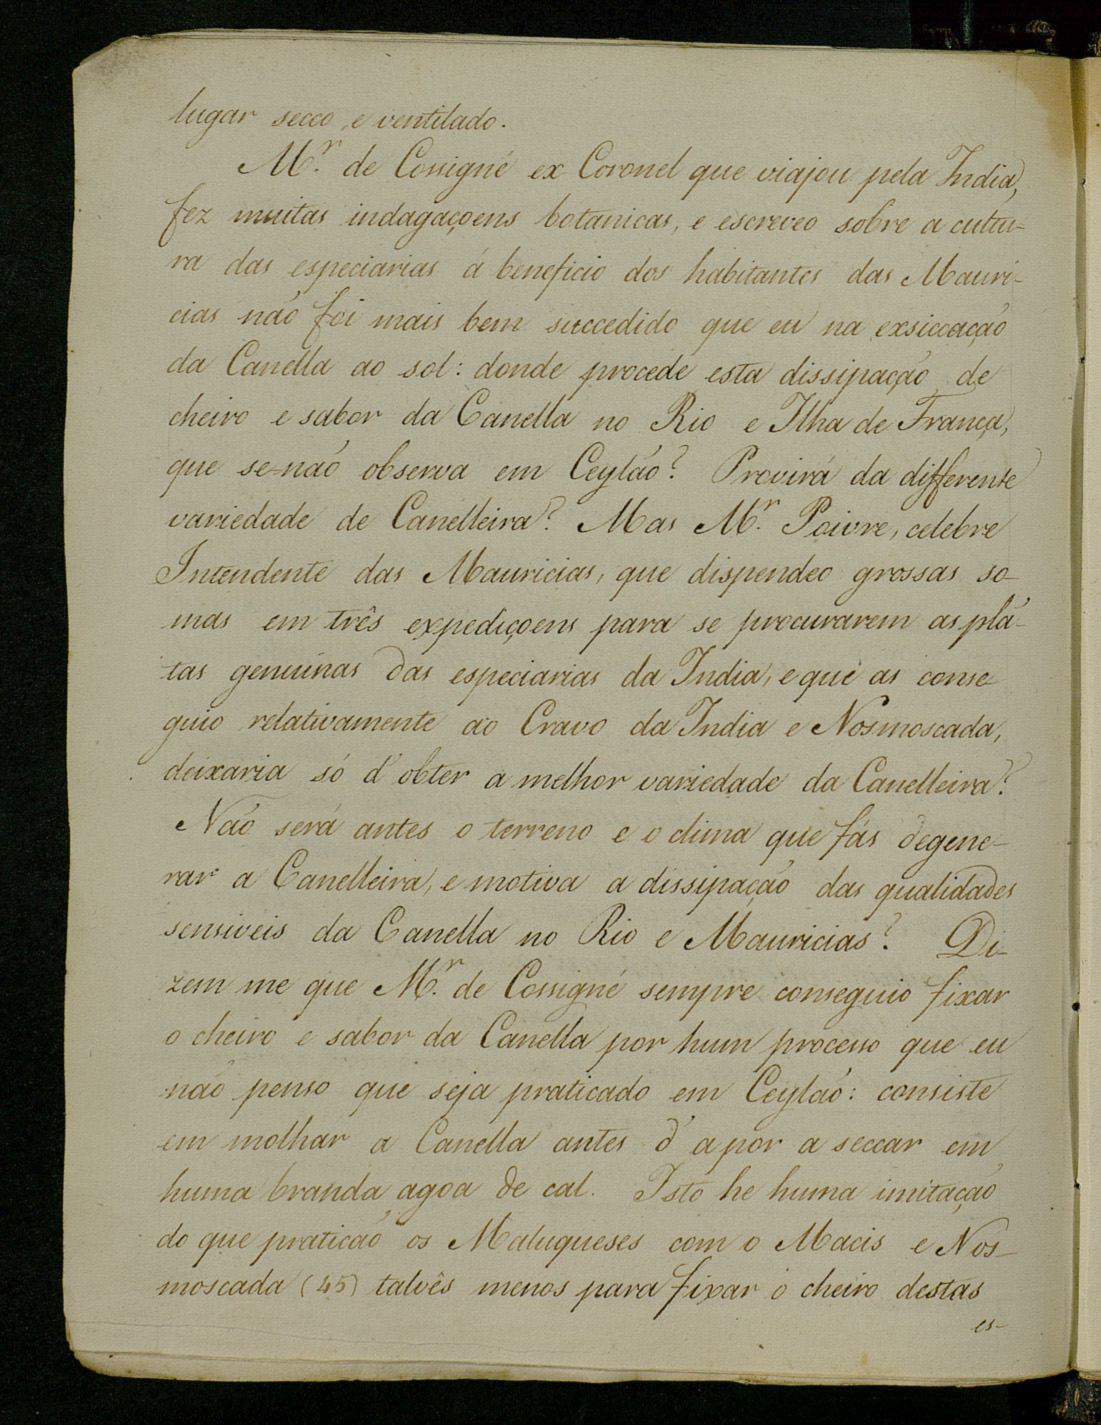 lugar secco, e ventilado.
M.r de Cossigné ex Coronel que viajou pela India,
fez muitas indagaçoens botanicas, e escreveo sobre a cultu-
ra das especiarias á beneficio dos habitantes das Mauri-
cias não foi mais bem succedido que eu na exsiccação
da Canella ao sol: donde procede esta dissipação de
cheiro e sabor da Canella no Rio e Ilha de França,
que se-não observa em Ceylão? Provirá da differente
variedade de Canelleira? Mas M.r Poivre, celebre
Intendente das Mauricias, que dispendeo grossas so-
mas em três expediçoens para se procurarem as plã-
tas genuinas das especiarias da India, e que as conse-
guio relativamente ao Cravo da India e Nosmoscada,
deixaria só d'obter a melhor variedade da Canelleira?
Não será antes o terreno e o clima que fás degene-
rar a Canelleira, e motiva a dissipação das qualidades
sensiveis da Canella no Rio e Mauricias? Di-
zem me que M.r de Cossigné sempre conseguio fixar
o cheiro e sabor da Canella por hum processo que eu
não penso que seja praticado em Ceylão: consiste
em molhar a Canella antes d'a por a seccar em
huma branda agoa de cal. Isto he huma imitação
do que praticão os Maluqueses com o Macis e Nos-
moscada (45) talvês menos para fixar o cheiro destas
es-